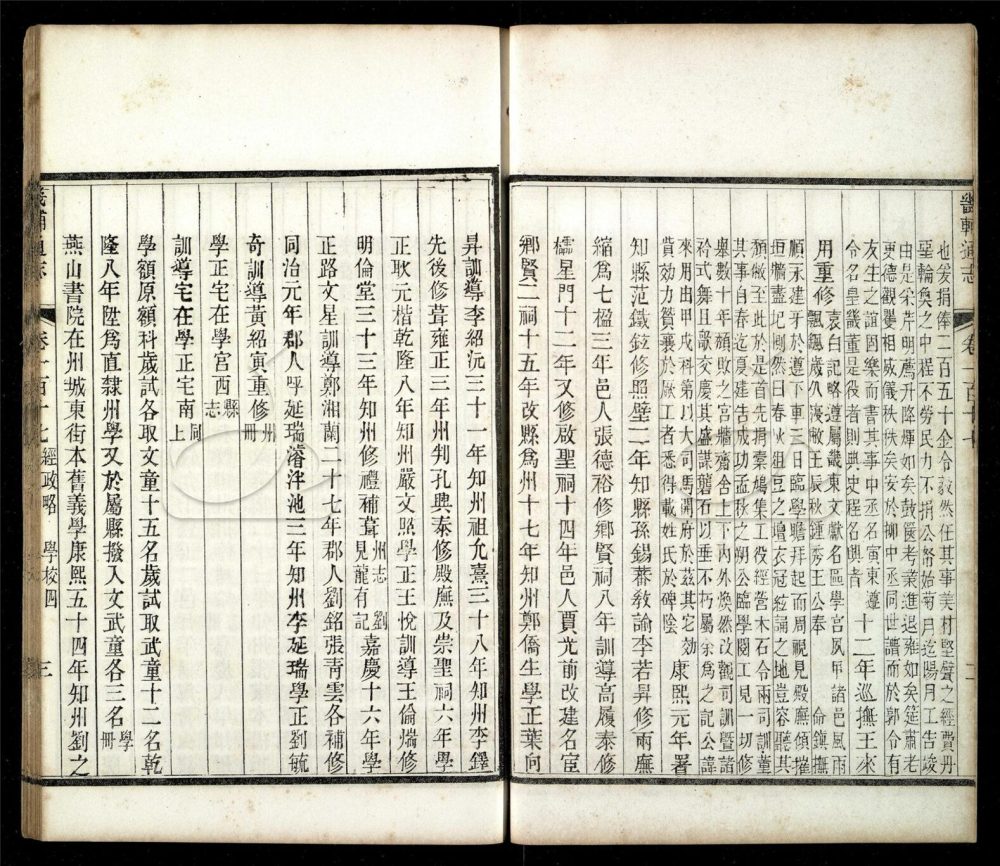 畿輔通志
卷一百十七
二
也爰捐俸二百五十企令毅然任其事美材堅甓之經費丹
堊輪奐之中程不勞民力不捐公帑始菊月迄陽月工告竣
由是采芹明薦升降煇如矣鼓篋考業進退雍如矣筵肅老
更德觀嬰相威儀秩秩矣安於柳中丞同世譜而於郭令有
友生之誼因樂而書其事中丞名寅東遵
令名皇畿董是役者則典史程名興者
十二年巡撫王來
用重修
哀白記略遵屬畿東文獻名區學宮夙甲諸邑風雨
飄颻歲久浸敝壬辰秋鍾秀王公奉
命鎮撫
順永建牙於遵下車三日臨學瞻拜起而周視見殿廡傾摧
垣牆盡圮惻然曰春火俎豆之壇衣冠絃誦之地豈容聽其
頹敝至此於是首先捐橐鳩集工役經營木石令兩司訓董
其事自春迄夏建告成功孟秋之朔公臨學閱工見一切修
舉數十年頹敗之宮牆齋舍上下內外煥然改觀司訓暨諸
衿式舞且歌交慶其盛謀礱石以垂不朽屬余爲之記公諱
來用由甲戌科第以大司馬開府於茲其它効
貲效力贊襄於厥工者悉得載姓氏於碑陰
康熙元年署
知縣范鐵鉉修照壁二年知縣孫錫蕃敎諭李若昇修兩廡
縮爲七楹三年邑人張德裕修鄉賢祠八年訓導高履泰修
櫺星門十二年又修啟聖祠十四年邑人賈光前改建名宦
鄉賢二祠十五年改縣爲州十七年知州郭僑生學正葉向
昇訓導李紹沆三十一年知州祖允熹三十八年知州李鐸
先後修葺雍正三年州判孔興泰修殿廡及崇聖祠六年學
正耿元楷乾隆八年知州嚴文照學正王悅訓導王倫端修
明倫堂三十三年知州修禮補葺
州志劉
見龍有記
嘉慶十六年學
正路文星訓導鄭湘蘭二十七年郡人劉銘張靑雲各補修
同治元年郡人呼延瑞濬泮池三年知州李延瑞學正劉毓
奇訓導黃紹寅重修
州
冊
學正宅在學宮西
縣
志
訓導宅在學正宅南
同
上
學額原額科歲試各取文童十五名歲試取武童十二名乾
隆八年陞爲直隸州學又於屬縣撥入文武童各三名
學
冊
燕山書院在州城東街本舊義學康熙五十四年知州劉之
畿輔通志
卷一百十七
經政略
學校四
三